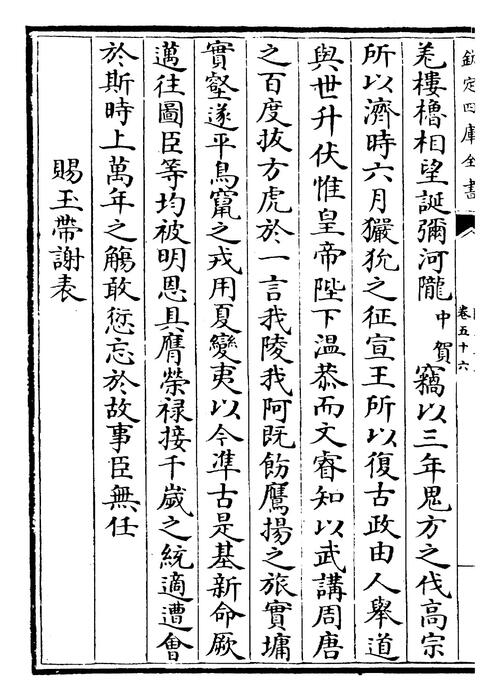 欽定四庫全書
卷五十六
羌樓櫓相望誕彌河隴中賀竊以三年鬼方之伐高宗
所以濟時六月玁狁之征宣王所以復古政由人舉道
與世升伏惟皇帝陛下温恭而文睿知以武講周唐
之百度拔方虎於一言我陵我阿既飭鷹揚之旅實墉
實壑遂平鳥竄之戎用夏變夷以今準古是基新命厥
邁往圖臣等均被明恩具膺榮禄接千歲之統適遭會
於斯時上萬年之觴敢愆忘於故事臣無任
賜玉帶謝表